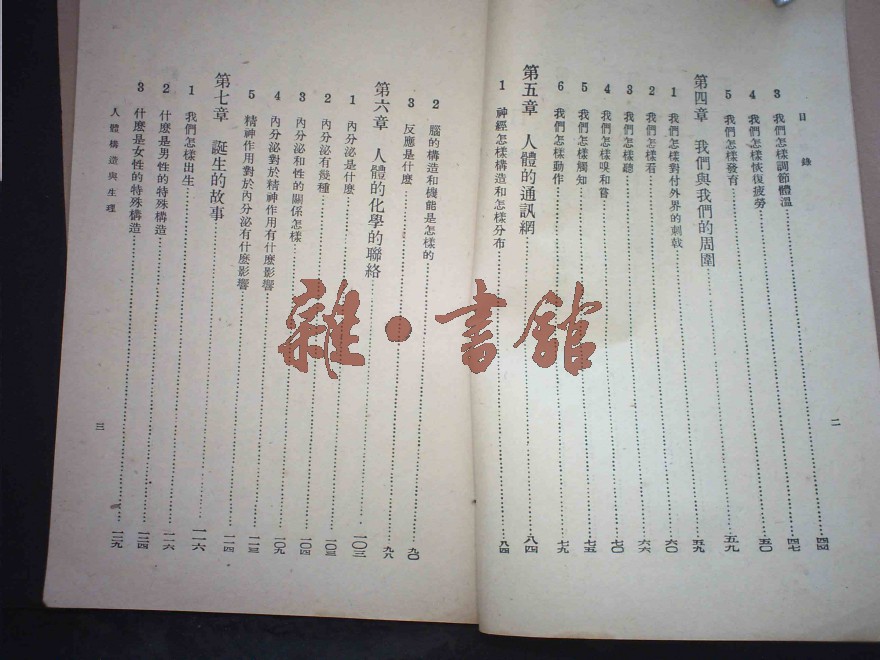 目錄
3 我們怎樣調節體溫……四四
4 我們怎樣恢復疲勞……四七
5 我們怎樣發育……五〇
第四章 我們與我們的周圍……五九
1 我們怎樣對付外界的刺戟……五九
2 我們怎樣看……六〇
3 我們怎樣聽……六六
4 我們怎樣嗅和嘗……七〇
5 我們怎樣觸知……七五
6 我們怎樣動作……七九
第五章 人體的通訊網……八四
1 神經怎樣構造和怎樣分布……八四
二
2 腦的構造和機能是怎樣的……九〇
3 反應是什麼……九八
第六章 人體的化學的聯絡……一〇三
1 內分泌是什麼……一〇三
2 內分泌有幾種……一〇四
3 內分泌和性的關係怎樣……一〇九
4 內分泌對於精神作用有什麼影響……一一三
5 精神作用對於內分泌有什麼影響……一一四
第七章 誕生的故事……一一六
1 我們怎樣出生……一一六
2 什麼是男性的特殊構造……一二四
3 什麼是女性的特殊構造……一二九
人體構造與生理
三
雜·書館